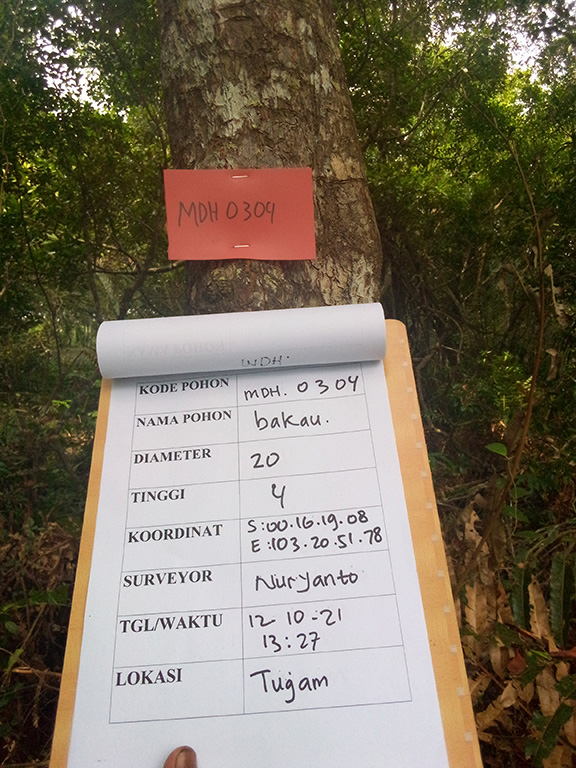 MDH 0304
WDH.
KODE POHON MDH. 0304
NAMA POHON bakau.
DIAMETER 20
TINGGI 4
KOORDINAT S:00.16.19.08
E:103.20.51.78
SURVEYOR Nuryanto
TGL/WAKTU 12-10-21
13:27
LOKASI Tugam